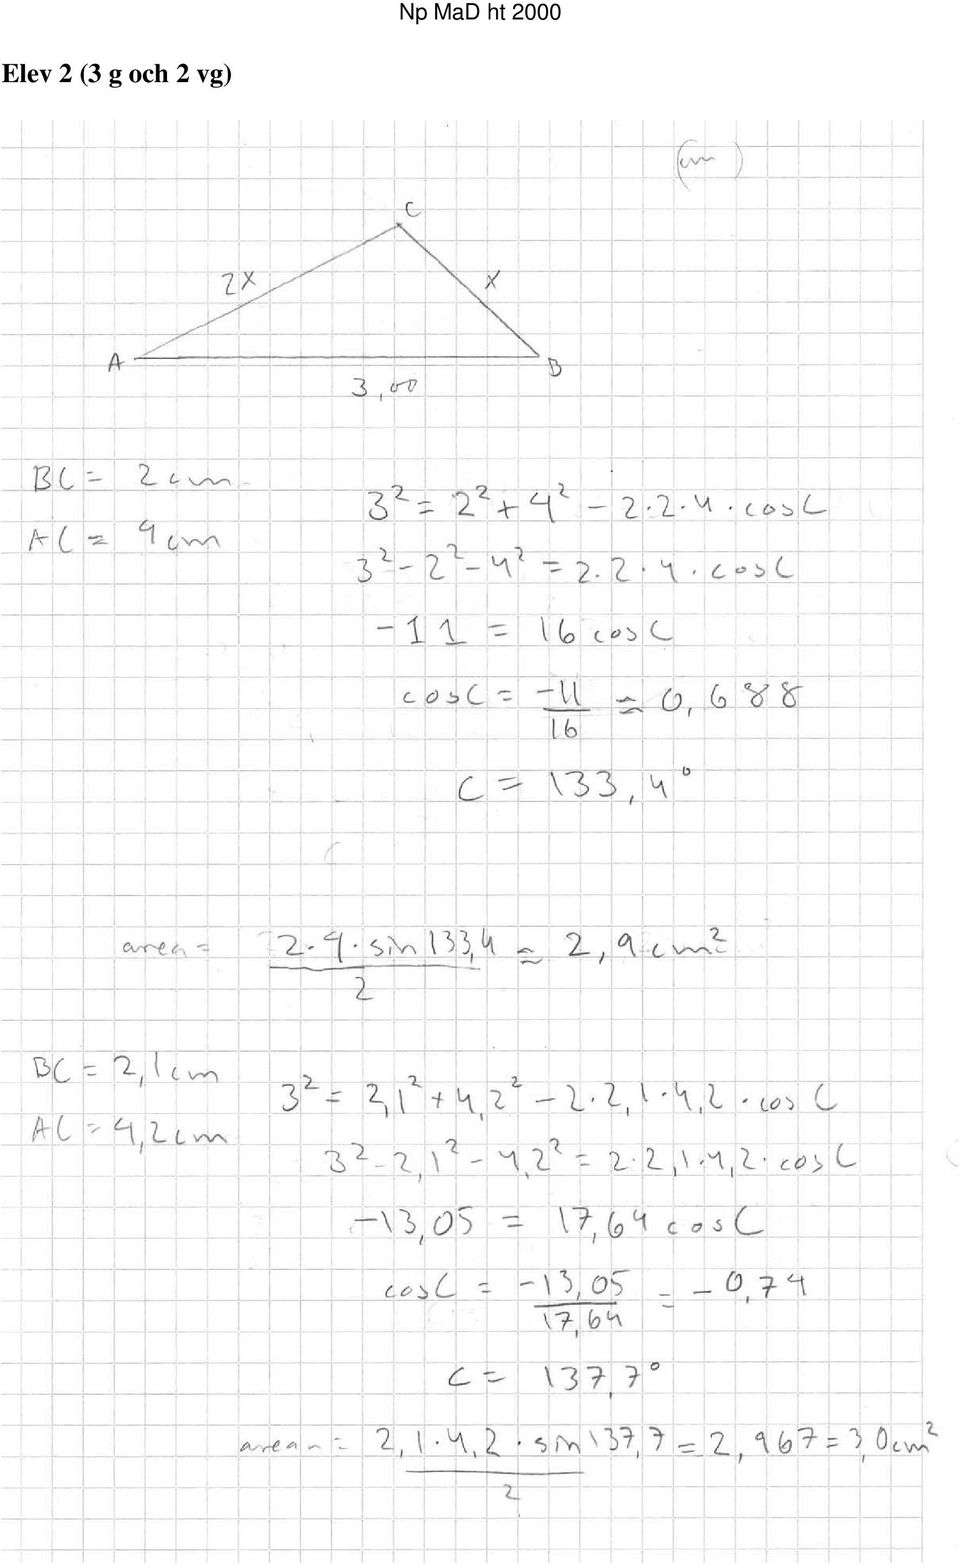 Np MaD ht 2000
Elev 2 (3 g och 2 vg)
(cm)
C
2x
x
A
B
3,00
BC = 2 cm
3² = 2² + 4² - 2·2·4·cosC
AC = 4 cm
3² - 2² - 4² = 2·2·4·cosC
-11 = 16 cosC
cosC = -11/16 ≈ 0,688
C = 133,4°
area = 2·4·sin133,4/2 ≈ 2,9 cm²
BC = 2,1 cm
3² = 2,1² + 4,2² - 2·2,1·4,2·cos C
AC = 4,2 cm
3² - 2,1² - 4,2² = 2·2,1·4,2·cosC
-13,05 = 17,64 cosC
cosC = -13,05/17,64 = -0,74
C = 137,7°
arean = 2,1·4,2·sin137,7/2 = 2,967 = 3,0cm²